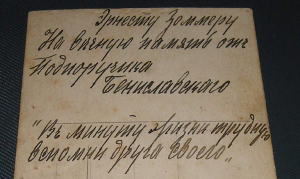 Эрнесту Зоммеру
На вѣчную память отъ
Подпоручика
Бениславскаго
"Въ минуту жизни трудную
вспомни друга своего"